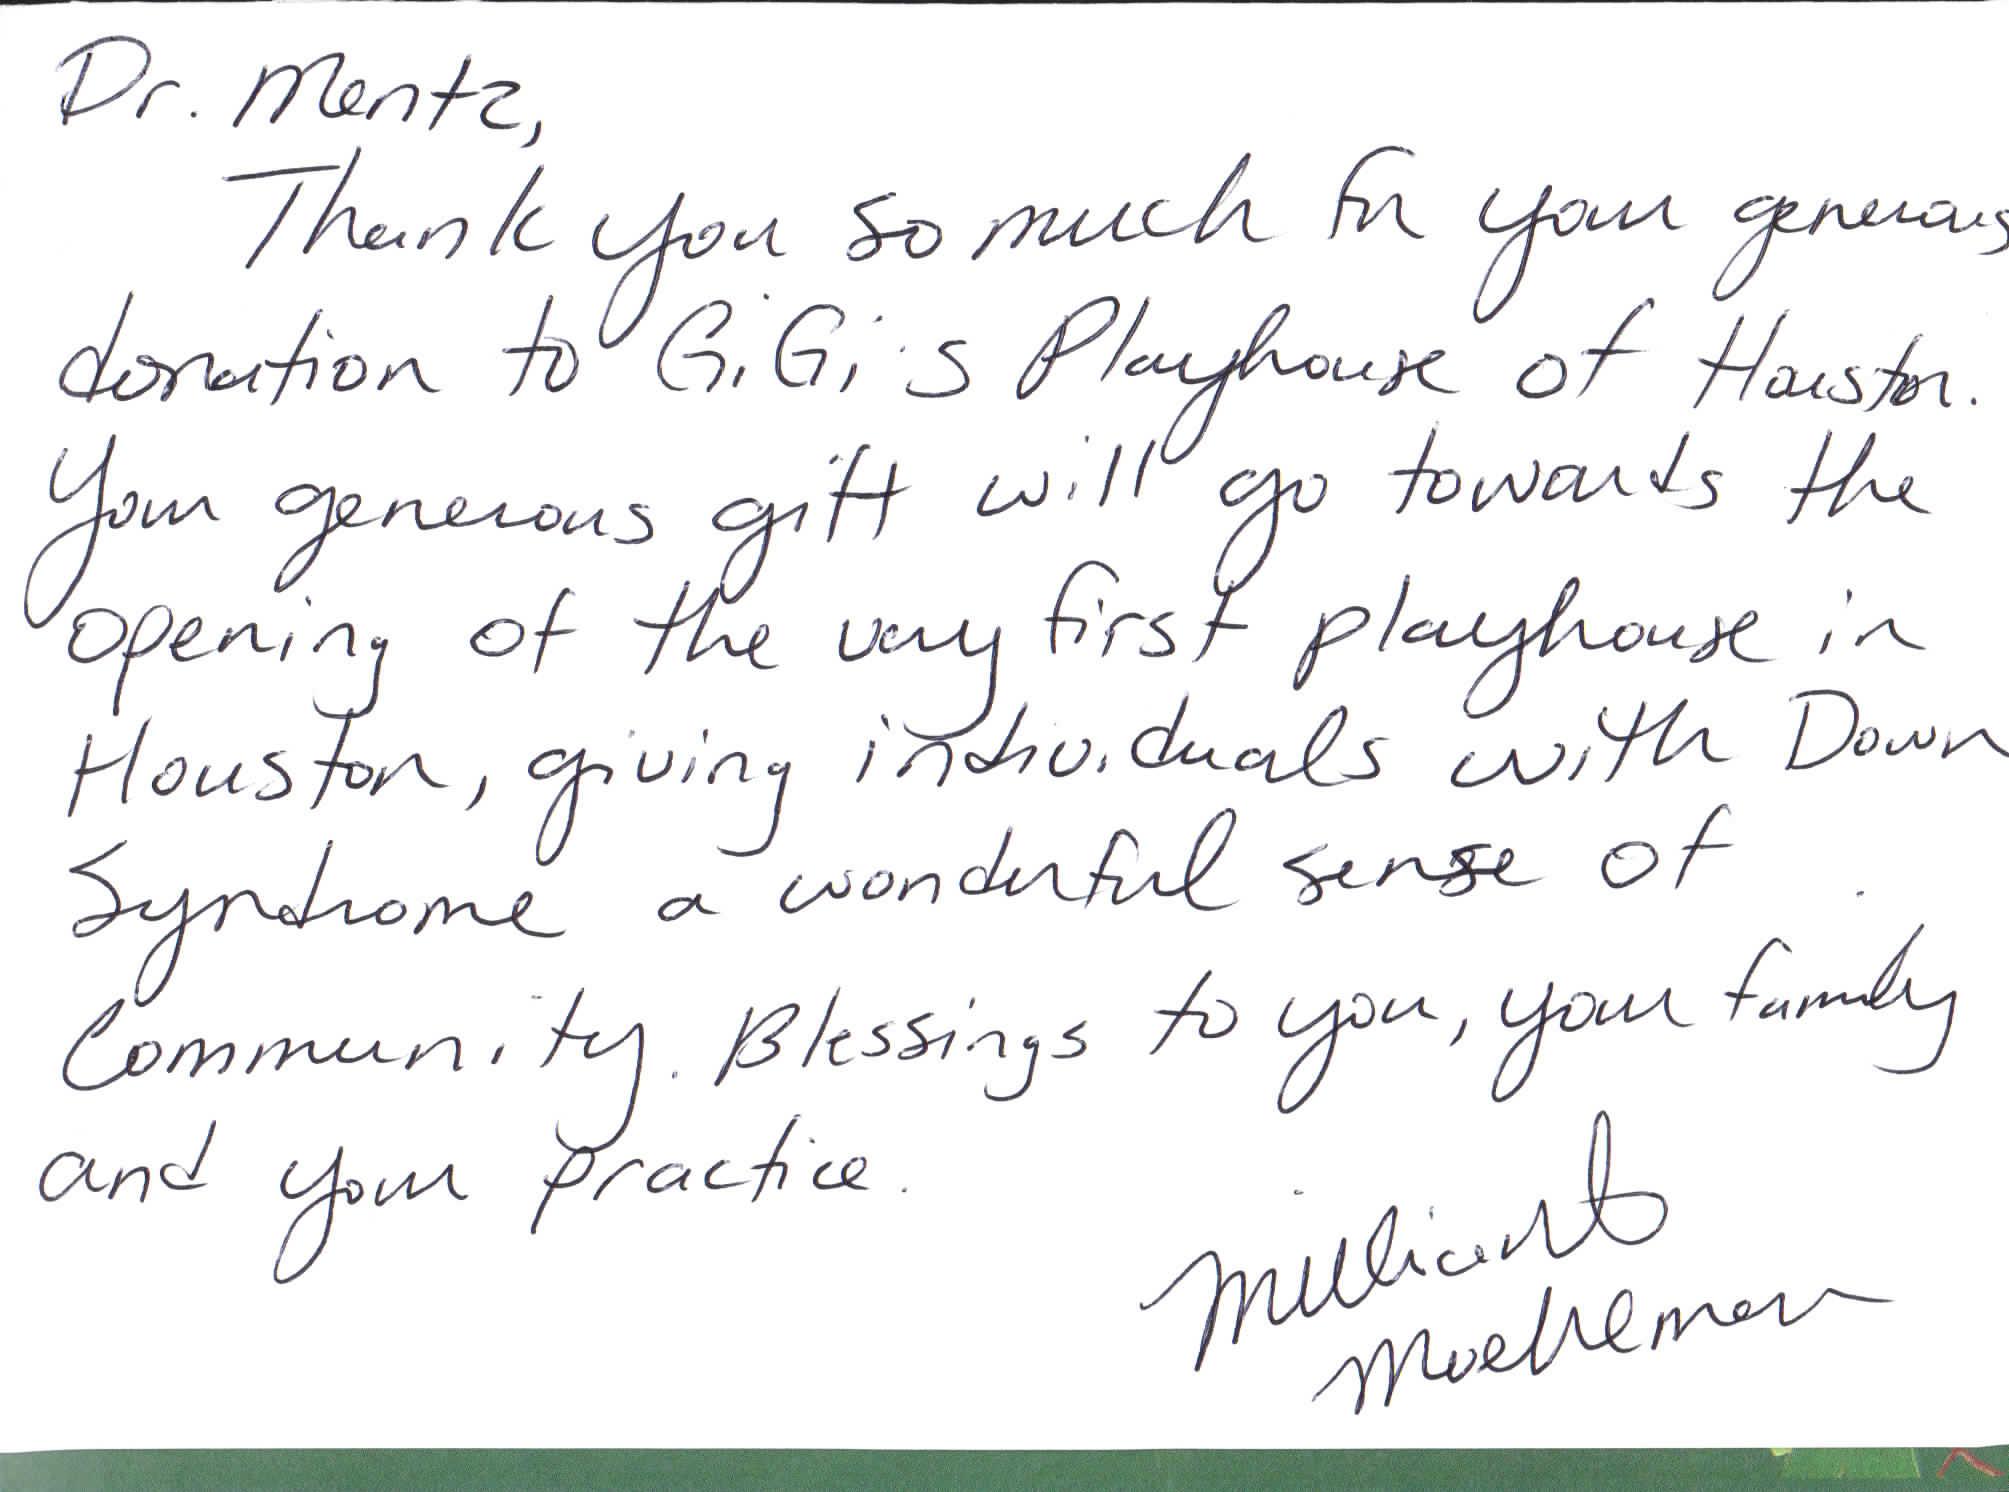 Dr. Mentz,
Thank you so much for your generous
donation to GiGi's Playhouse of Houston.
Your generous gift will go towards the
opening of the very first playhouse in
Houston, giving individuals with Down
Syndrome a wonderful sense of
Community. Blessings to you, your family
and your practice.
Millicent
Moehlman